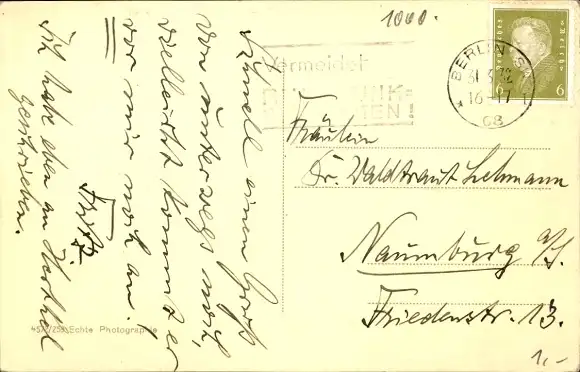 1000.
BERLIN SW
31.3.32
16-17
68
6 6
Vermeidet
FUNK=
Fräulein
Dr. Waldtraut Lehmann
Naumburg a/S.
Friedenstr. 13.
1,-
Schnell einen Gruß
von unterwegs noch,
vielleicht kommt er
vor mir noch an.
Fritz
Ich habe eben an
geschrieben.
Echte Photographie